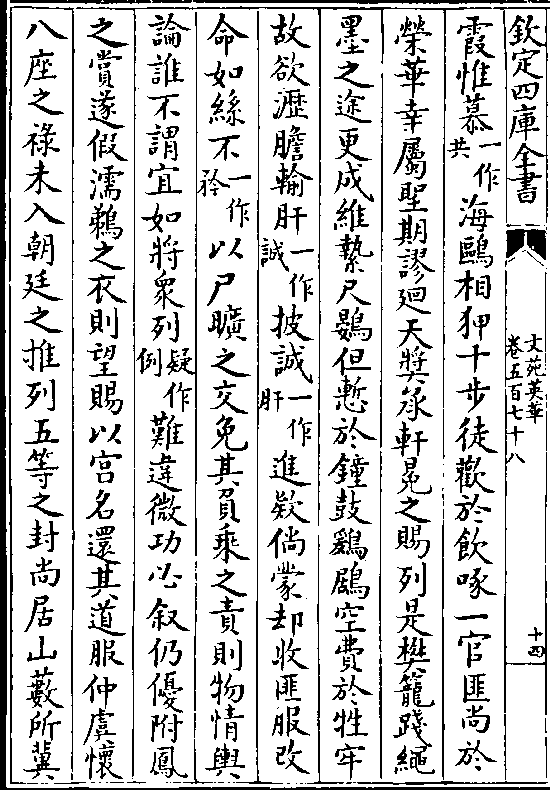 欽定四庫全書
文苑英華
卷五百七十八
十四
霞惟慕一作共海鷗相狎十步徒歡於飲啄一官匪尚於
榮華幸屬聖期謬迴天奬承軒冕之賜列是樊籠踐繩
墨之途更成維縶尺鷃但慙於鐘鼓鶢鶋空費於牲牢
故欲瀝膽輸肝一作誠披誠一作肝進欵倘蒙却收匪服改
命如絲不一作矜以尸曠之交免其負乘之責則物情輿
論誰不謂宜如將衆列疑作例難違微功必叙仍優附鳳
之賞遂假濡鵜之衣則望賜以宫名還其道服仲虞懷
八座之禄未入朝廷之推列五等之封尚居山藪所冀